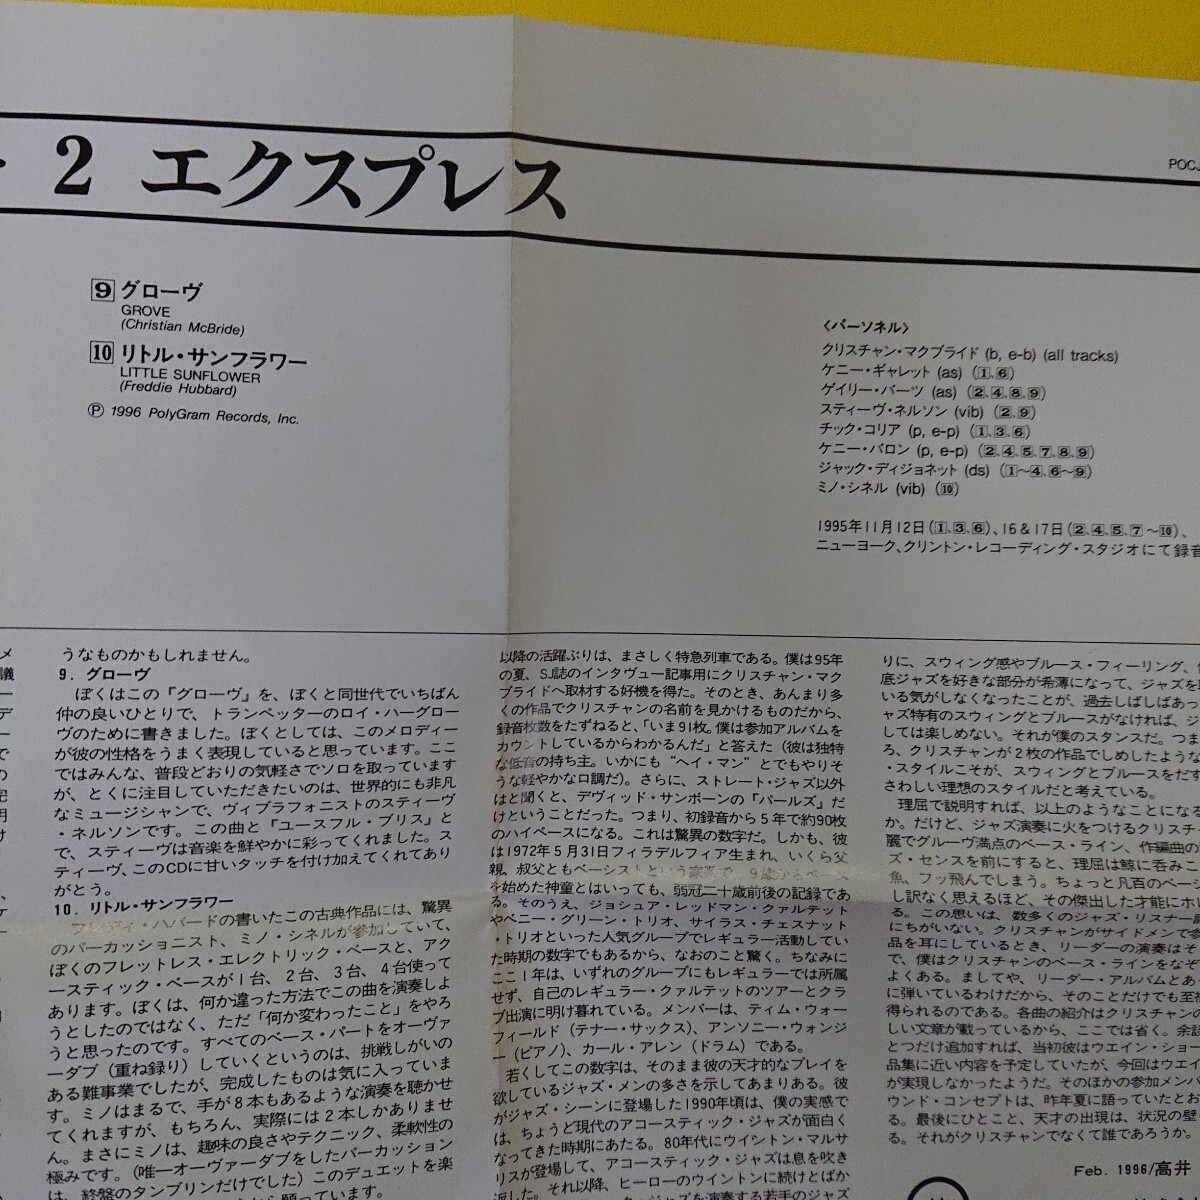 ・2 エクスプレス
POCJ
9 グローヴ
GROVE
(Christian McBride)
10 リトル・サンフラワー
LITTLE SUNFLOWER
(Freddie Hubbard)
Ⓟ 1996 PolyGram Records, Inc.
〈パーソネル〉
クリスチャン・マクブライド (b, e-b) (all tracks)
ケニー・ギャレット (as) (1、6)
ゲイリー・バーツ (as) (2、4、8、9)
スティーヴ・ネルソン (vib) (2、9)
チック・コリア (p, e-p) (1、3、6)
ケニー・バロン (p, e-p) (2、4、5、7、8、9)
ジャック・ディジョネット (ds) (1〜4、6〜9)
ミノ・シネル (vib) (10)
1995年11月12日(1、3、6)、16&17日(2、4、5、7〜10)、
ニューヨーク、クリントン・レコーディング・スタジオにて録音
うなものかもしれません。
9. グローヴ
ぼくはこの『グローヴ』を、ぼくと同世代でいちばん
仲の良いひとりで、トランペッターのロイ・ハーグロー
ヴのために書きました。ぼくとしては、このメロディー
が彼の性格をうまく表現していると思っています。ここ
ではみんな、普段どおりの気軽さでソロを取っています
が、とくに注目していただきたいのは、世界的にも非凡
なミュージシャンで、ヴィブラフォニストのスティーヴ
・ネルソンです。この曲と『ユースフル・ブリス』と
で、スティーヴは音楽を鮮やかに彩ってくれました。ス
ティーヴ、このCDに甘いタッチを付け加えてくれてあり
がとう。
10. リトル・サンフラワー
フレディ・ハバードの書いたこの古典作品には、驚異
のパーカッショニスト、ミノ・シネルが参加していて、
ぼくのフレットレス・エレクトリック・ベースと、アク
ースティック・ベースが1台、2台、3台、4台使って
あります。ぼくは、何か違った方法でこの曲を演奏しよ
うとしたのではなく、ただ「何か変わったこと」をやろ
うと思ったのです。すべてのベース・パートをオーヴァ
ーダブ(重ね録り)していくというのは、挑戦しがいの
ある難事業でしたが、完成したものは気に入っていま
す。ミノはまるで、手が8本もあるような演奏を聴かせ
てくれますが、もちろん、実際には2本しかありませ
ん。まさにミノは、趣味の良さやテクニック、柔軟性の
極みです。(唯一オーヴァーダブをしたパーカッション
は、終盤のタンブリンだけでした)このデュエットを楽
以降の活躍ぶりは、まさしく特急列車である。僕は95年
の夏、SJ誌のインタヴュー記事用にクリスチャン・マク
ブライドへ取材する好機を得た。そのとき、あんまり多
くの作品でクリスチャンの名前を見かけるものだから、
録音枚数をたずねると、「いま91枚。僕は参加アルバムを
カウントしているからわかるんだ」と答えた(彼は独特
な低音の持ち主。いかにも“ヘイ・マン”とでもやりそ
うな軽やかな口調だ)。さらに、ストレート・ジャズ以外
はと聞くと、デヴィッド・サンボーンの『パールズ』だ
けということだった。つまり、初録音から5年で約90枚
のハイペースになる。これは驚異の数字だ。しかも、彼
は1972年5月31日フィラデルフィア生まれ、いくら父
親、叔父ともベーシストという家系で、9歳からベース
を始めた神童とはいっても、弱冠二十歳前後の記録であ
る。そのうえ、ジョシュア・レッドマン・クァルテット
やベニー・グリーン・トリオ、サイラス・チェスナット
・トリオといった人気グループでレギュラー活動してい
た時期の数字でもあるから、なおのこと驚く。ちなみに
ここ1年は、いずれのグループにもレギュラーでは所属
せず、自己のレギュラー・クァルテットのツアーとクラ
ブ出演に明け暮れている。メンバーは、ティム・ウォー
フィールド(テナー・サックス)、アンソニー・ウォンジ
ー(ピアノ)、カール・アレン(ドラム)である。
若くしてこの数字は、そのまま彼の天才的なプレイを
欲しているジャズ・メンの多さを示してあまりある。彼
がジャズ・シーンに登場した1990年頃は、僕の実感で
は、ちょうど現代のアコースティック・ジャズが面白く
なってきた時期にあたる。80年代にウイントン・マルサ
リスが登場して、アコースティック・ジャズは息を吹き
返した。それ以降、ヒーローのウイントンに続けとばか
りに、スウィング感やブルース・フィーリング、
底ジャズを好きな部分が希薄になって、ジャズを
いる気がしなくなったことが、過去しばしばあっ
ャズ特有のスウィングとブルースがなければ、ジ
しては楽しめない。それが僕のスタンスだ。つま
ろ、クリスチャンが2枚の作品でしめしたような
・スタイルこそが、スウィングとブルースをだす
さわしい理想のスタイルだと考えている。
理屈で説明すれば、以上のようなことになる
か。だけど、ジャズ演奏に火をつけるクリスチ
麗でグルーヴ満点のベース・ライン、作編曲の
ズ・センスを前にすると、理屈は鯨に呑みこ
魚、フッ飛んでしまう。ちょっと凡百のベース
し訳なく思えるほど、その傑出した才能にホレ
る。この思いは、数多くのジャズ・リスナー
にちがいない。クリスチャンがサイドメンで参
品を耳にしているとき、リーダーの演奏はそ
で、僕はクリスチャンのベース・ラインをなぞ
よくある。ましてや、リーダー・アルバムとあ
に弾いているわけだから、そのことだけでも至
得られるのである。各曲の紹介はクリスチャンの
しい文章が載っているから、ここでは省く。余談
とつだけ追加すれば、当初彼はウエイン・ショー
品集に近い内容を予定していたが、今回はウエイ
が実現しなかったようだ。そのほかの参加メンバ
ウンド・コンセプトは、昨年夏に語っていたとお
る。最後にひとこと、天才の出現は、状況の壁
る。それがクリスチャンでなくて誰であろうか。
Feb. 1996/高井